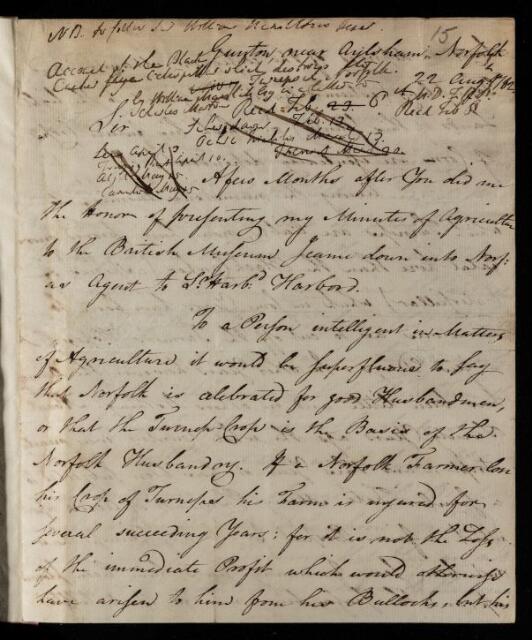 NB. to follow Sir William Hamiltons Paper
15
Gunton near Aylsham, Norfolk
Account of the Black
Canker
which destroys the
Turneps in Norfolk.
22 Augst 1782
By William Marshall Esq in a letter to
Charles Morton
M.D. F.R.S.
Read Feb 23. 6
Read Feb 6
Sir
Feb. 13
April 3
April 10
A few Months after You did me
the Honor of presenting my Minutes of Agriculture
to the British Museum I came down into Norf:
as Agent to Sr Harbd. Harbord.
To a Person intelligent in Matters
of Agriculture it would be superfluous to say
that Norfolk is celebrated for good Husbandmen,
or that the Turnep-Crop is the Basis of the
Norfolk Husbandry. If a Norfolk Farmer lose
his Crop of Turneps his Farm is injured for
several succeeding Years: for it is not the Loss
of the immediate Profit which would otherwise
have arisen to him from his Bullocks, but his